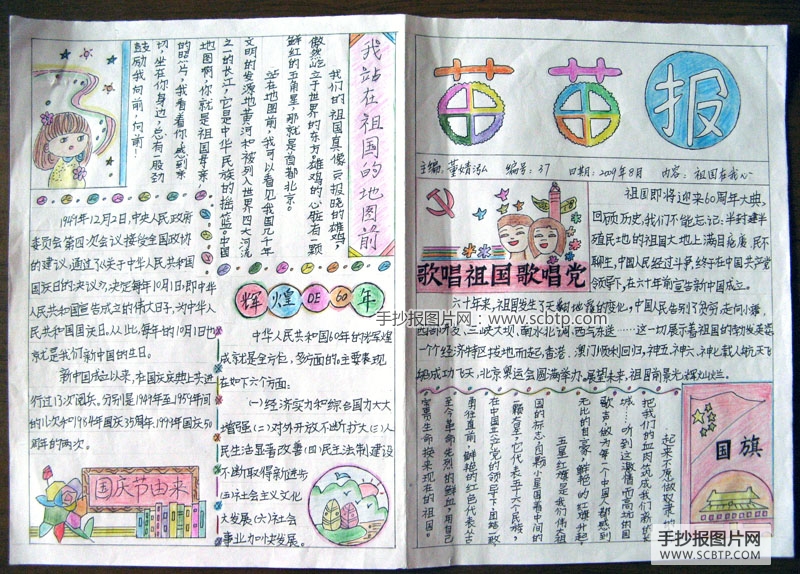 我站在祖国的地图前
我们的祖国真像一只报晓的雄鸡,
傲然屹立于世界的东方,雄鸡的心脏有一颗
鲜红的五角星,那就是首都北京。
站在地图前,我可以看见我国几千年
文明的发源地黄河和被列入世界四大河流
之一的长江,它是中华民族的摇篮。中国
地图啊,你就是祖国母亲
的照片,我看着你,感到亲
切,坐在你身边,总有一股劲
鼓励我向前,向前!
1949年12月2日,中央人民政府
委员会第四次会议接受全国政协
的建议,通过了《关于中华人民共和国
国庆日的决议》,决定每年10月1日,即中华
人民共和国宣告成立的伟大日子,为中华人
民共和国国庆日。从此,每年的10月1日也
就是我们新中国的生日。
新中国成立以来,在国庆庆典上共进
行过13次阅兵,分别是1949年至1959年间
的11次和1984年国庆35周年,1999年国庆50
周年的两次。
国庆节由来
辉煌DE60年
中华人民共和国60年的光军煌
成就是全方位,多方面的。主要表现
在如下六个方面:
(一)经济实力和综合国力大大
增强(二)对外开放不断扩大(三)人
民生活显著改善(四)民主法制建设
不断取得新进步
(五)社会主义文化
大发展(六)社会
事业加快发展。
苗苗报
主编:董婧泓 编号:37 日期:2009年8月 内容:祖国在我心
歌唱祖国 歌唱党
祖国即将迎来60周年大典,
回顾历史,我们不能忘记:半封建半
殖民地的祖国大地上满目疮痍,民不
聊生,中国人民经过斗争,终于在中国共产党
领导下,在六十年前宣告新中国成立。
六十年来,祖国发生了天翻地覆的变化,中国人民告别了贫穷,走向小康,
西部开发,三峡大坝,南水北调,西气东送……这一切展示着祖国的勃勃发展
一个个经济特区拔地而起,香港、澳门顺利回归,神五、神六、神七载人航天飞
船成功飞天,北京奥运会圆满举办。展望未来,祖国前景光辉灿烂。
国旗
起来不愿做奴隶的
把我们的血肉筑成我们新的长
城……听到这激情而高亢的国
歌声,做为每一个中国人都感到
无比的自豪,鲜艳的红旗升起
五星红旗是我们伟大祖
国的标志,四颗小星围着中间的
一颗大星,它代表五十六个民族,
在中国共产党的领导下,团结一致
勇往直前,鲜艳的红色代表从古
至今革命先烈的鲜血,用自己
宝贵生命换来现在的祖国。
手抄报图片网:www.scbtp.com
手抄报图片网
WWW.SCBTP.COM